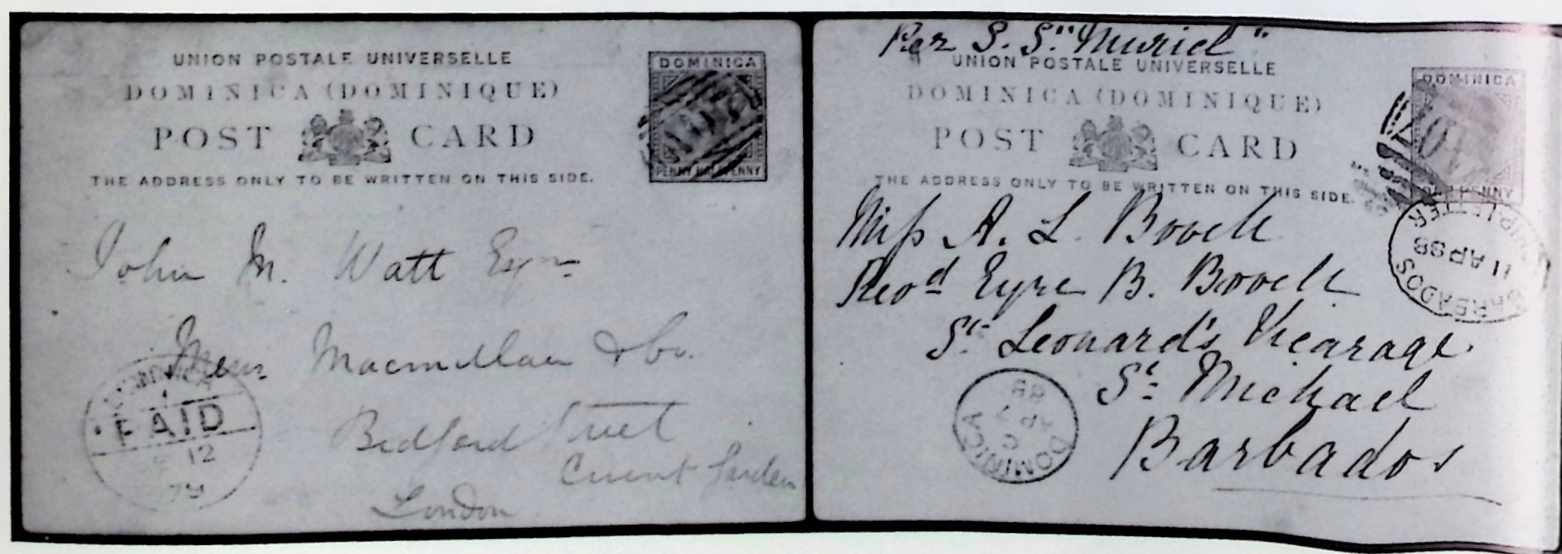 UNION POSTALE UNIVERSELLE
DOMINICA (DOMINIQUE)
POST CARD
THE ADDRESS ONLY TO BE WRITTEN ON THIS SIDE.
DOMINICA
PENNY HALFPENNY
John M. Watt Esqre
Messrs Macmillan & Co.
Bedford Street
Covent Garden
London
DOMINICA
PAID
12
79
Per S. S. "Muriel"
UNION POSTALE UNIVERSELLE
DOMINICA (DOMINIQUE)
POST CARD
THE ADDRESS ONLY TO BE WRITTEN ON THIS SIDE.
DOMINICA
PENNY
A07
Miss A. L. Bovell
Revd Eyre B. Bovell
St. Leonard's Vicarage
St. Michael
Barbados
BARBADOS
11 AP 88
SHIP LETTER
DOMINICA
C
AP 7
88